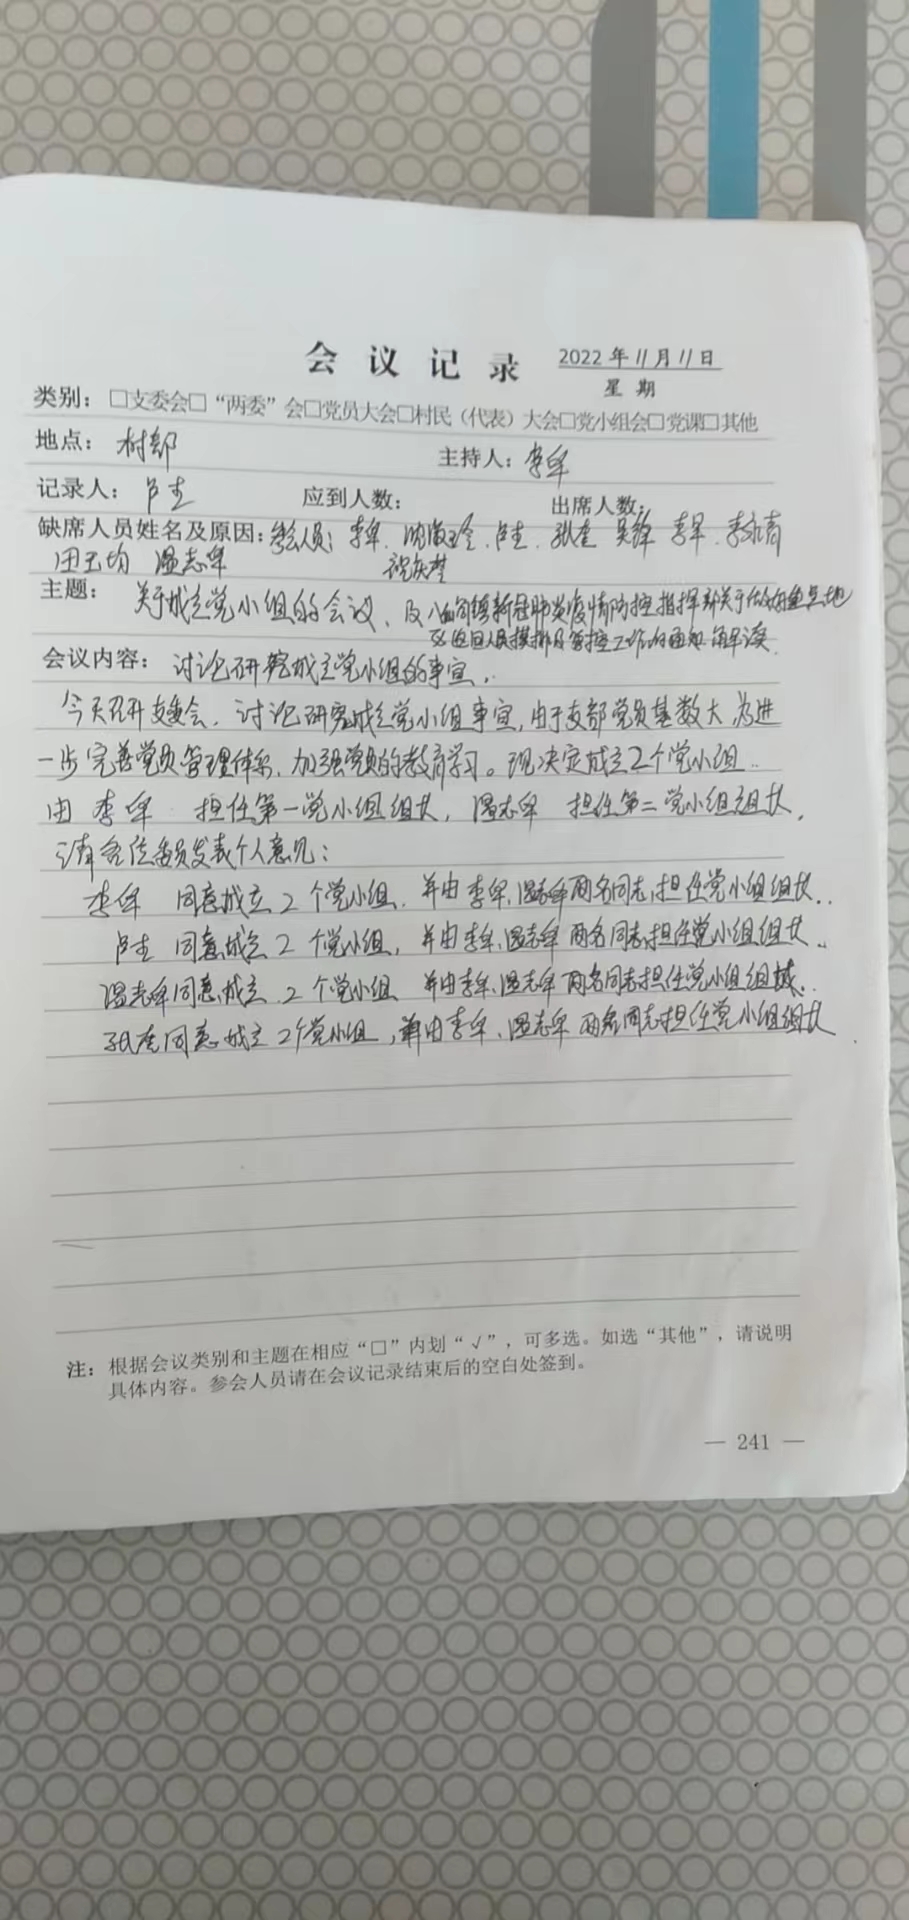 会 议 记 录 2022 年 11 月 11 日
星 期
类别：□支委会□“两委”会□党员大会□村民（代表）大会□党小组会□党课□其他
地点： 村部 主持人：李军
记录人： 卢杰 应到人数： 出席人数：
缺席人员姓名及原因：参会人员：李军、 卢杰、张奎 李军、
田玉均 温志军
主题： 关于成立党小组的会议、及 新冠肺炎疫情防控指挥部关于做好
返回人员摸排及管控工作的通知
会议内容： 讨论研究成立党小组的事宜.
今天召开支委会、讨论研究成立党小组事宜,由于支部党员基数大为进
一步完善党员管理体系、加强党员的教育学习。现决定成立2个党小组.
由 李军 担任第一党小组组长, 温志军 担任第二党小组组长.
请各位委员发表个人意见:
李军 同意成立 2 个党小组. 并由李军、温志军两名同志担任党小组组长.
卢杰 同意成立 2 个党小组, 并由李军、温志军两名同志担任党小组组长.
温志军同意成立 2 个党小组 并由李军、温志军两名同志担任党小组组
张奎同意成立 2个党小组, 并由李军、温志军两名同志担任党小组组长
注：根据会议类别和主题在相应“□”内划“√”，可多选。如选“其他”，请说明
具体内容。参会人员请在会议记录结束后的空白处签到。
— 241 —